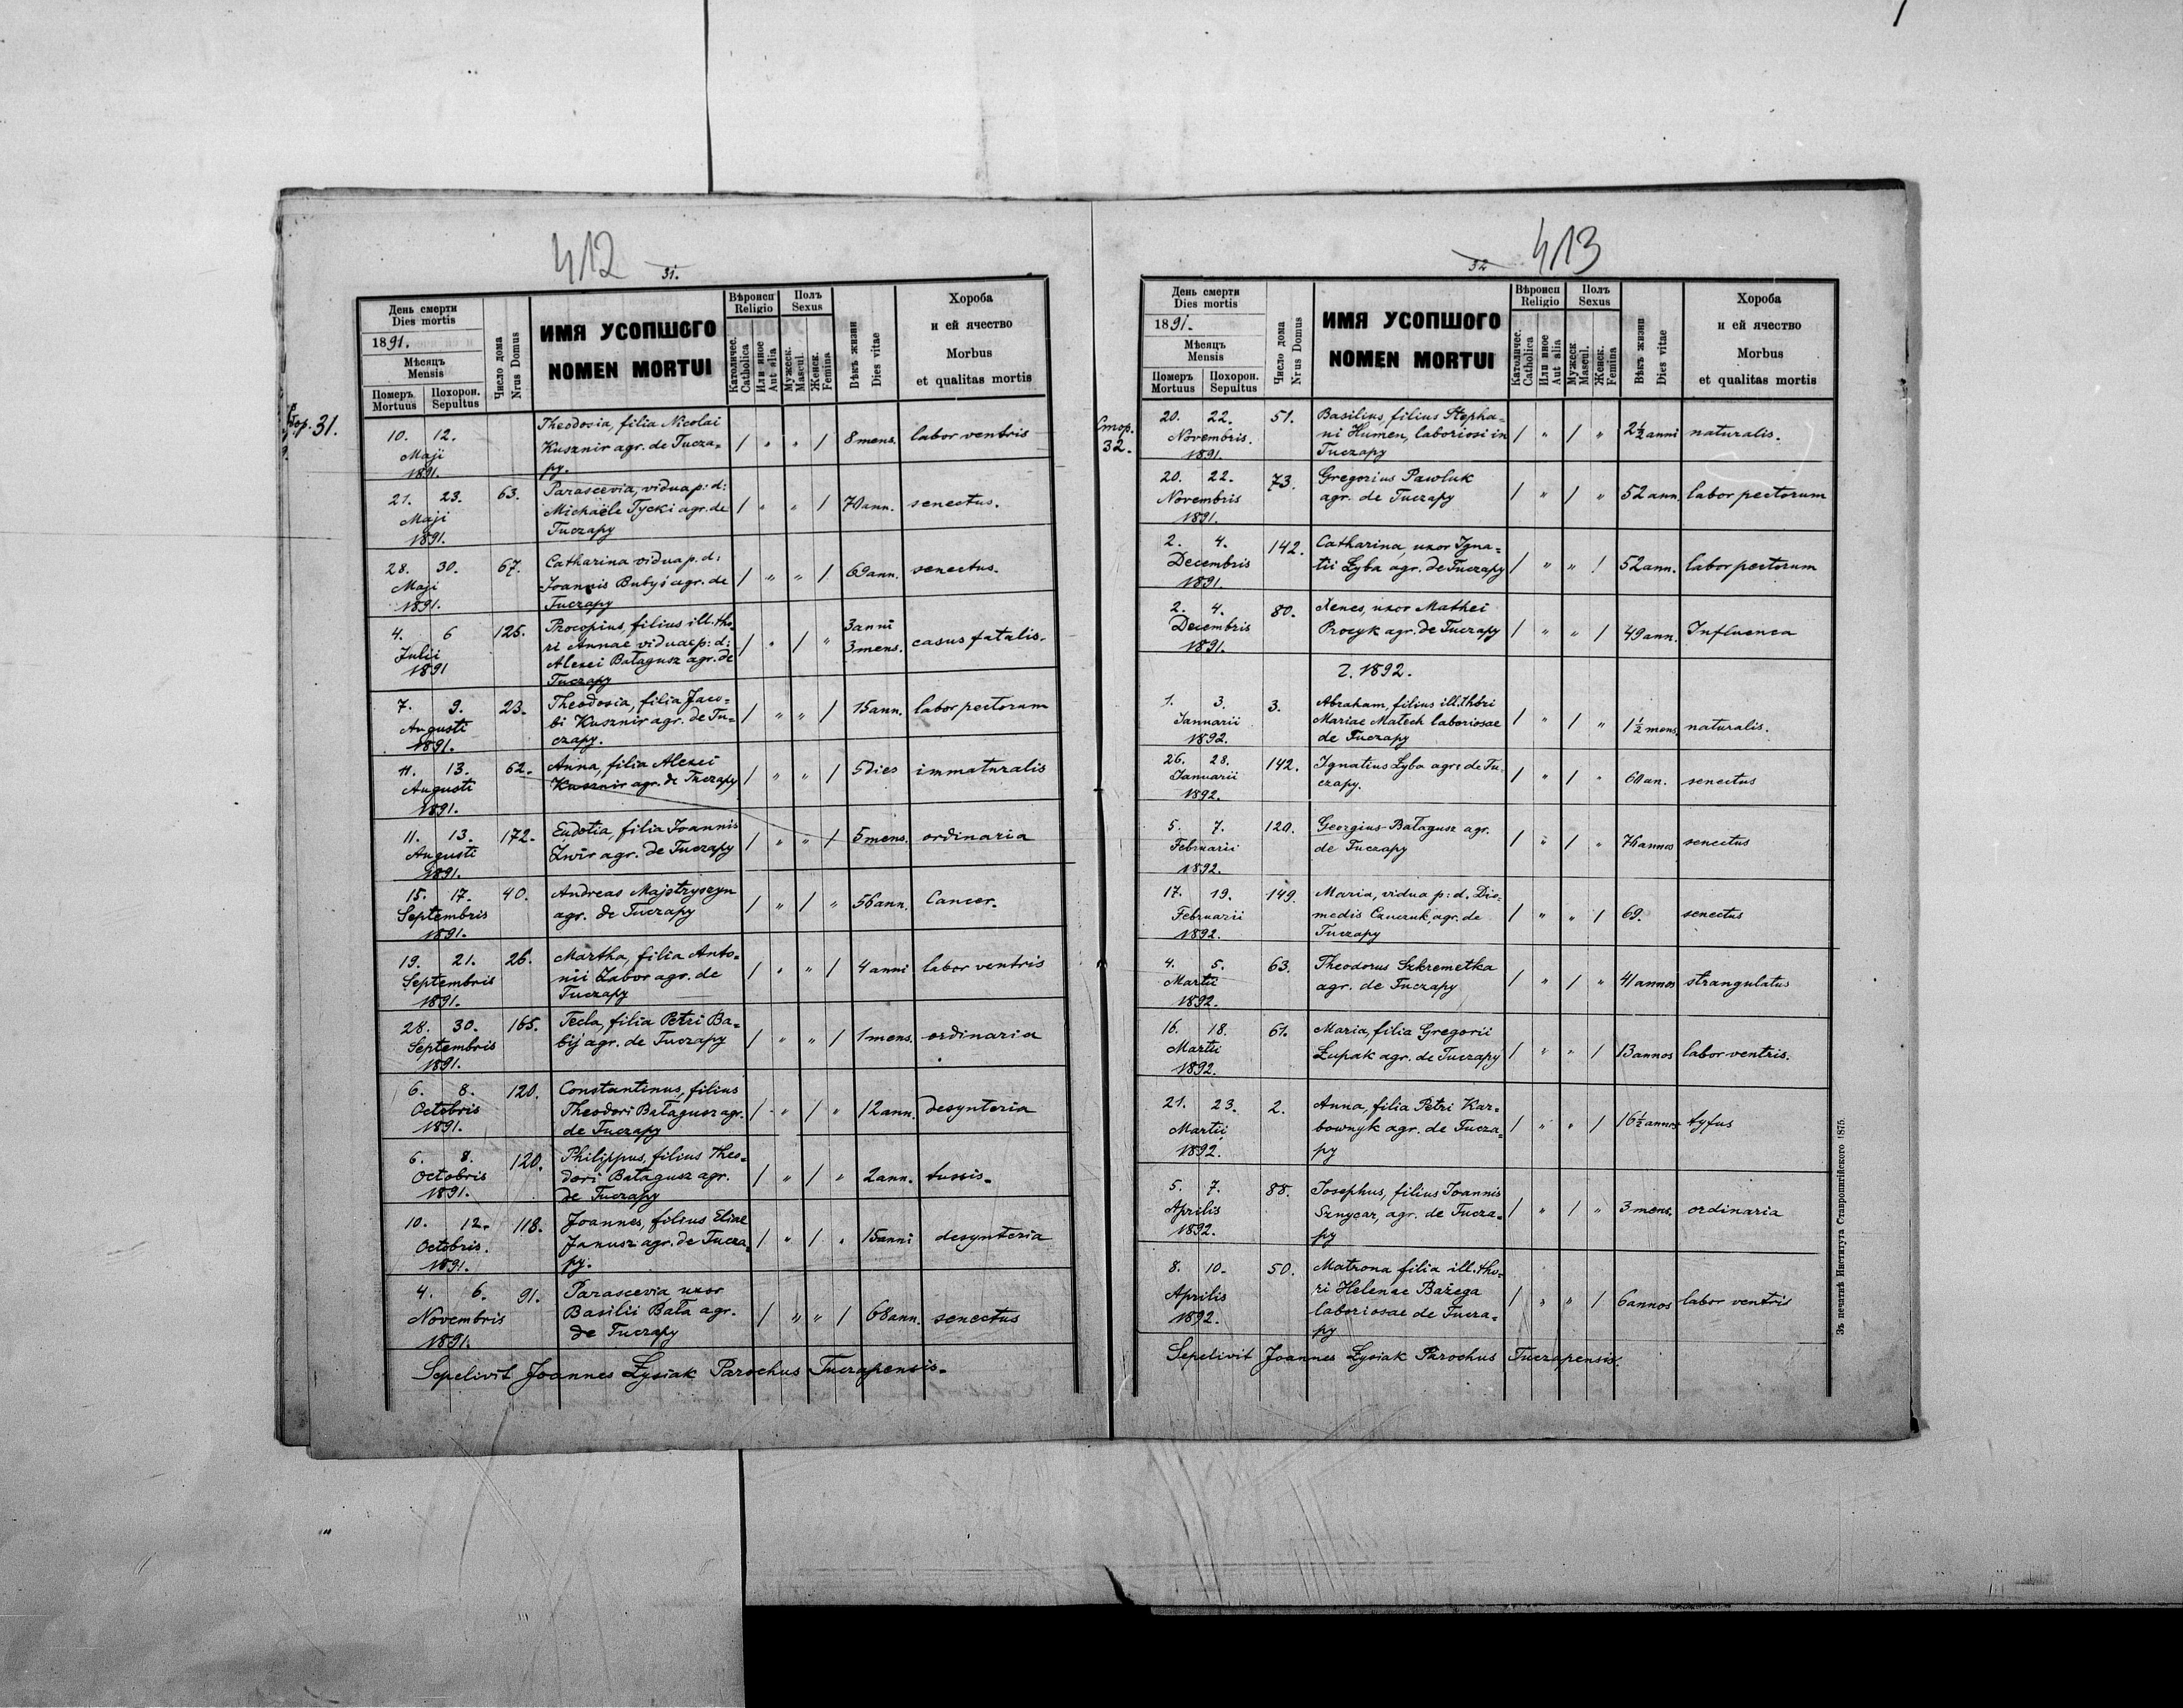 412
31.
День смерти
Dies mortis
1891.
Мѣсяцъ
Mensis
Померъ Похорон.
Mortuus Sepultus
Число дома
Nrus Domus
ИМЯ УСОПШОГО
NOMEN MORTUI
Вѣроисп
Religio
Католичес.
Catholica
Или иное
Aut alia
Полъ
Sexus
Мужеск.
Mascul.
Женск.
Femina
Вѣкъ жизни
Dies vitae
Хороба
и ей ячество
Morbus
et qualitas mortis
Стор. 31.
10. 12.
Maji
1891.
Theodosia, filia Nicolai
Kusznir agr. de Tucza-
py.
/ " " / 8 mens. labor ventris
21. 23.
Maji
1891.
63.
Parascevia, vidua p: d:
Michaele Tycki agr. de
Tuczapy
/ " " / 70 ann. senectus.
28. 30.
Maji
1891.
67.
Catharina vidua p. d:
Joannis Bubyś agr. de
Tuczapy
/ " " / 69 ann. senectus.
4. 6
Julii
1891
125.
Procopius, filius ill. tho-
ri Annae viduae p: d:
Alexei Bałagusz agr. de
Tuczapy
/ " / " 3 anni
3 mens. casus fatalis.
7. 9.
Augusti
1891.
23.
Theodosia, filia Jaco-
bi Kusznir agr. de Tu-
czapy.
/ " " / 15 ann. labor pectorum
11. 13.
Augusti
1891.
62.
Anna, filia Alexei
Kusznir agr. de Tuczapy
/ " " / 5 dies immaturalis
11. 13.
Augusti
1891.
172.
Eudotia, filia Joannis
Zwir agr. de Tuczapy
/ " " / 5 mens. ordinaria
15. 17.
Septembris
1891.
40.
Andreas Majstryszyn
agr. de Tuczapy
/ " / " 56 ann. Cancer.
19. 21.
Septembris
1891.
26.
Martha, filia Anto-
nii Zabor agr. de
Tuczapy
/ " " / 4 anni labor ventris
28. 30.
Septembris
1891.
165.
Tecla, filia Petri Ba-
bij agr. de Tuczapy
/ " " / 1 mens. ordinaria
6. 8.
Octobris
1891.
120.
Constantinus, filius
Theodori Bałagusz agr.
de Tuczapy
/ " / " 12 ann. desynteria
6. 8.
Octobris
1891.
120.
Philippus, filius Theo-
dori Bałagusz agr.
de Tuczapy
/ " / " 2 ann. tussis.
10. 12.
Octobris.
1891.
118.
Joannes, filius Eliae
Janusz agr. de Tucza-
py.
/ " / " 15 anni desynteria
4. 6.
Novembris
1891.
91.
Parascevia uxor
Basilii Bała agr.
de Tuczapy
/ " " / 68 ann. senectus
Sepelivit Joannes Łysiak Parochus Tuczapensis.
32
413
День смерти
Dies mortis
1891.
Мѣсяцъ
Mensis
Померъ Похорон.
Mortuus Sepultus
Число дома
Nrus Domus
ИМЯ УСОПШОГО
NOMEN MORTUI
Вѣроисп
Religio
Католичес.
Catholica
Или иное
Aut alia
Полъ
Sexus
Мужеск
Mascul.
Женск.
Femina
Вѣкъ жизни
Dies vitae
Хороба
и ей ячество
Morbus
et qualitas mortis
Стор.
32.
20. 22.
Novembris.
1891.
51.
Basilius, filius Stepha-
ni Humen, laboriosi in
Tuczapy
/ " / " 2½ anni naturalis.
20. 22.
Novembris
1891.
73.
Gregorius Pawluk
agr. de Tuczapy
/ " / " 52 ann. labor pectorum
2. 4.
Decembris
1891.
142.
Catharina, uxor Igna-
tii Łyba agr. de Tuczapy
/ " " / 52 ann. labor pectorum
2. 4.
Decembris
1891.
80.
Xenes, uxor Mathei
Procyk agr. de Tuczapy
/ " " / 49 ann. Influenca
2. 1892.
1. 3.
Januarii
1892.
3.
Abraham, filius ill. thori
Mariae Matech laboriosae
de Tuczapy
/ " / " 1½ mens. naturalis.
26. 28.
Januarii
1892.
142.
Ignatius Łyba agr. de Tu-
czapy.
/ " / " 60 an. senectus
5. 7.
Februarii
1892.
120.
Georgius Bałagusz agr.
de Tuczapy
/ " / " 76 annos senectus
17. 19.
Februarii
1892.
149.
Maria, vidua p: d. Dio-
medis Canczuk, agr. de
Tuczapy
/ " " / 69. senectus
4. 5.
Martii
1892.
63.
Theodorus Szkremetka
agr. de Tuczapy
/ " / " 41 annos strangulatus
16. 18.
Martii
1892.
61.
Maria, filia Gregorii
Łupak agr. de Tuczapy
/ " " / 13 annos labor ventris.
21. 23.
Martii
1892.
2.
Anna, filia Petri Kar-
bownyk agr. de Tucza-
py
/ " " / 16½ annos tyfus
5. 7.
Aprilis
1892.
88.
Josephus, filius Joannis
Sznycar, agr. de Tucza-
py
/ " / " 3 mens. ordinaria
8. 10.
Aprilis
1892.
50.
Matrona filia ill. tho-
ri Helenae Bażega
laboriosae de Tucza-
py
/ " " / 6 annos labor ventris
Sepelivit Joannes Łysiak Parochus Tuczapensis.
Зъ печатнѣ Института Ставропигійского 1875.